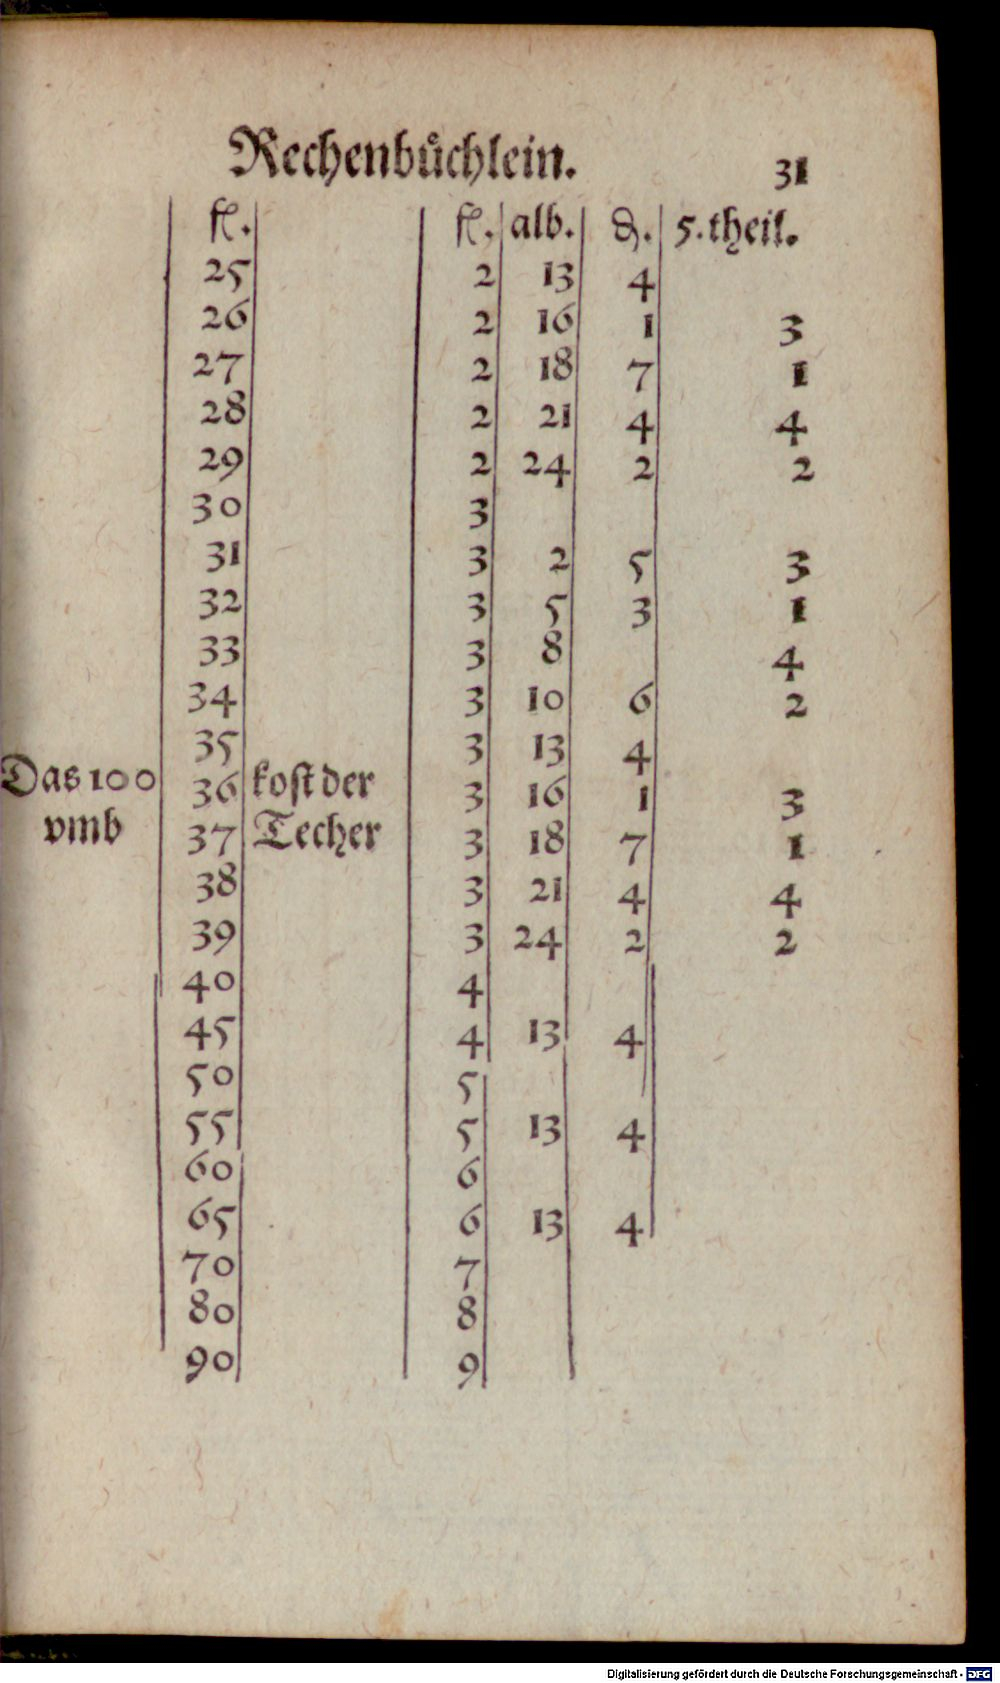 Rechenbůchlein. 31
fl. fl. alb. ₰. 5. theil.
25 2 13 4
26 2 16 1 3
27 2 18 7 1
28 2 21 4 4
29 2 24 2 2
30 3
31 3 2 5 3
32 3 5 3 1
33 3 8 4
34 3 10 6 2
35 3 13 4
Das 100 36 kost der 3 16 1 3
vmb 37 Techer 3 18 7 1
38 3 21 4 4
39 3 24 2 2
40 4
45 4 13 4
50 5
55 5 13 4
60 6
65 6 13 4
70 7
80 8
90 9
Digitalisierung gefördert durch die Deutsche Forschungsgemeinschaft - DFG